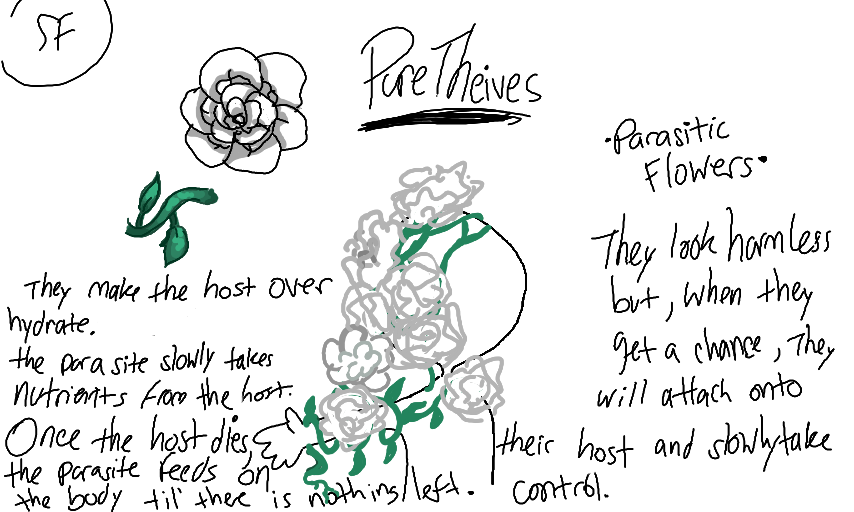 SF
Pure Theives
•Parasitic
Flowers•
They look harmless
but, when they
get a chance, They
will attach onto
their host and slowly take
control.
They make the host over
hydrate.
the parasite slowly takes
nutrients from the host.
Once the host dies,
the parasite feeds on
the body til' there is nothing left.